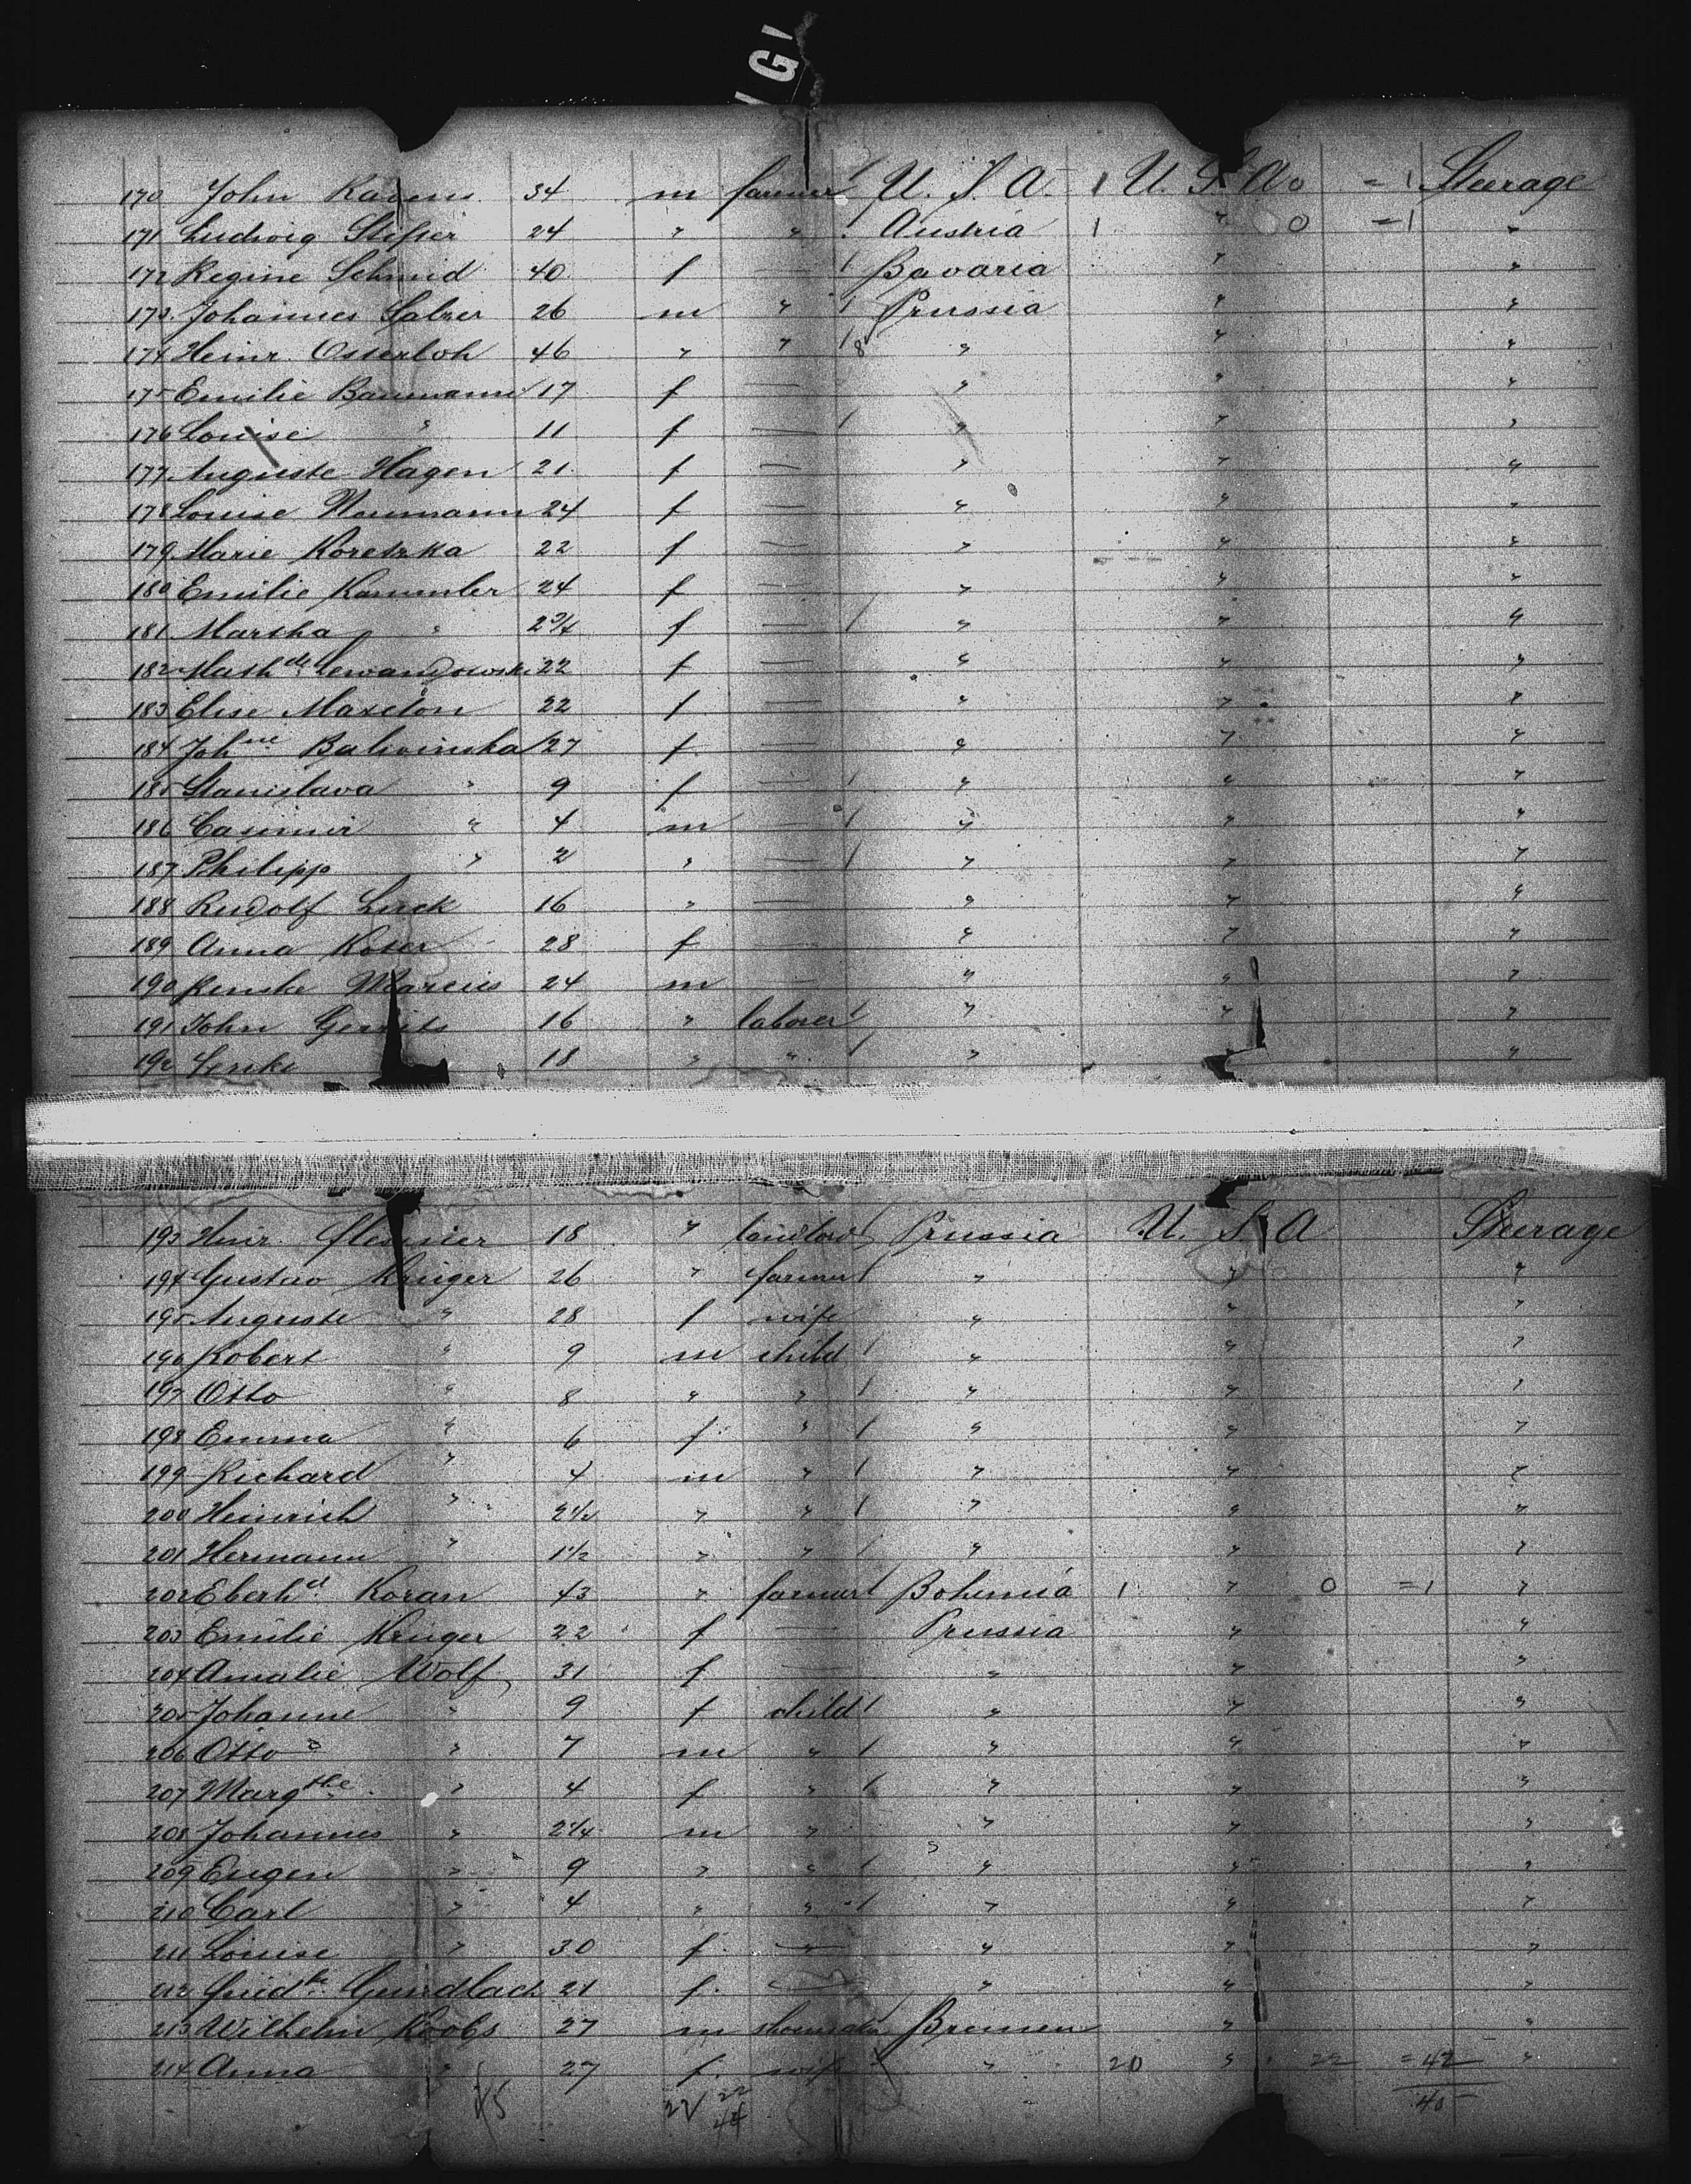 IG
170 John Karens 34 m farmer / U. S. A. 1 U. S. A 0 = 1 Steerage
171 Ludwig Stifter 24 " " / Austria 1 " 0 = 1 "
172 Regine Schmid 40 f — / Bavaria " "
173 Johannes Salzer 26 m " / Prussia " "
174 Heinr. Osterloh 46 " " / 8 " " "
175 Emilie Baumann 17 f — " " "
176 Louise " 11 f — / " " "
177 Auguste Hagen 21 f — " " "
178 Louise Naumann 24 f — " " "
179 Marie Koretzka 22 f — " " "
180 Emilie Kammler 24 f — " " "
181 Martha " 2 3/4 f — / " " "
182 Math de Lewandowski 22 f — " " "
183 Elise Maxelon 22 f — " " "
184 Joh ne 27 f — " " "
185 Stanislava " 9 f — / " " "
186 Casimir " 4 m — / " " "
187 Philipp " 2 " — / " " "
188 Rudolf Lück 16 " — " " "
189 Anna Koser 28 f — " " "
190 Renske Marcus 24 m — " " "
191 John Gerrits 16 " laborer / " " "
192 18 " " / " " "
193 Heinr. 18 " / Prussia U. S. A Steerage
194 Gustav Krüger 26 " farmer / " " "
195 Auguste " 28 f wife " " "
196 Robert " 9 m child / " " "
197 Otto " 8 " " / " " "
198 Emma " 6 f " / " " "
199 Richard " 4 m " / " " "
200 Heinrich " 2 1/2 " " / " " "
201 Hermann " 1 1/2 " " / " " "
202 Eberh d Koran 43 " farmer / Bohemia 1 " 0 = 1 "
203 Emilie Krüger 22 f — Prussia " "
204 Amalie Wolf 31 f — " " "
205 Johanne " 9 f child / " " "
206 Otto " 7 m " / " " "
207 Marg the " 4 f " / " " "
208 Johannes " 2 1/4 m " " " "
209 Eugen " 9 " " / " " "
210 Carl " 4 " " / " " "
211 Louise " 30 f — " " "
212 Gundlach 21 f. — " " "
213 Wilhelm Koobs 27 m shoemaker / Bremen " "
214 Anna " 27 f. wife " 20 " 22 = 42 "
45 22 22 44 40